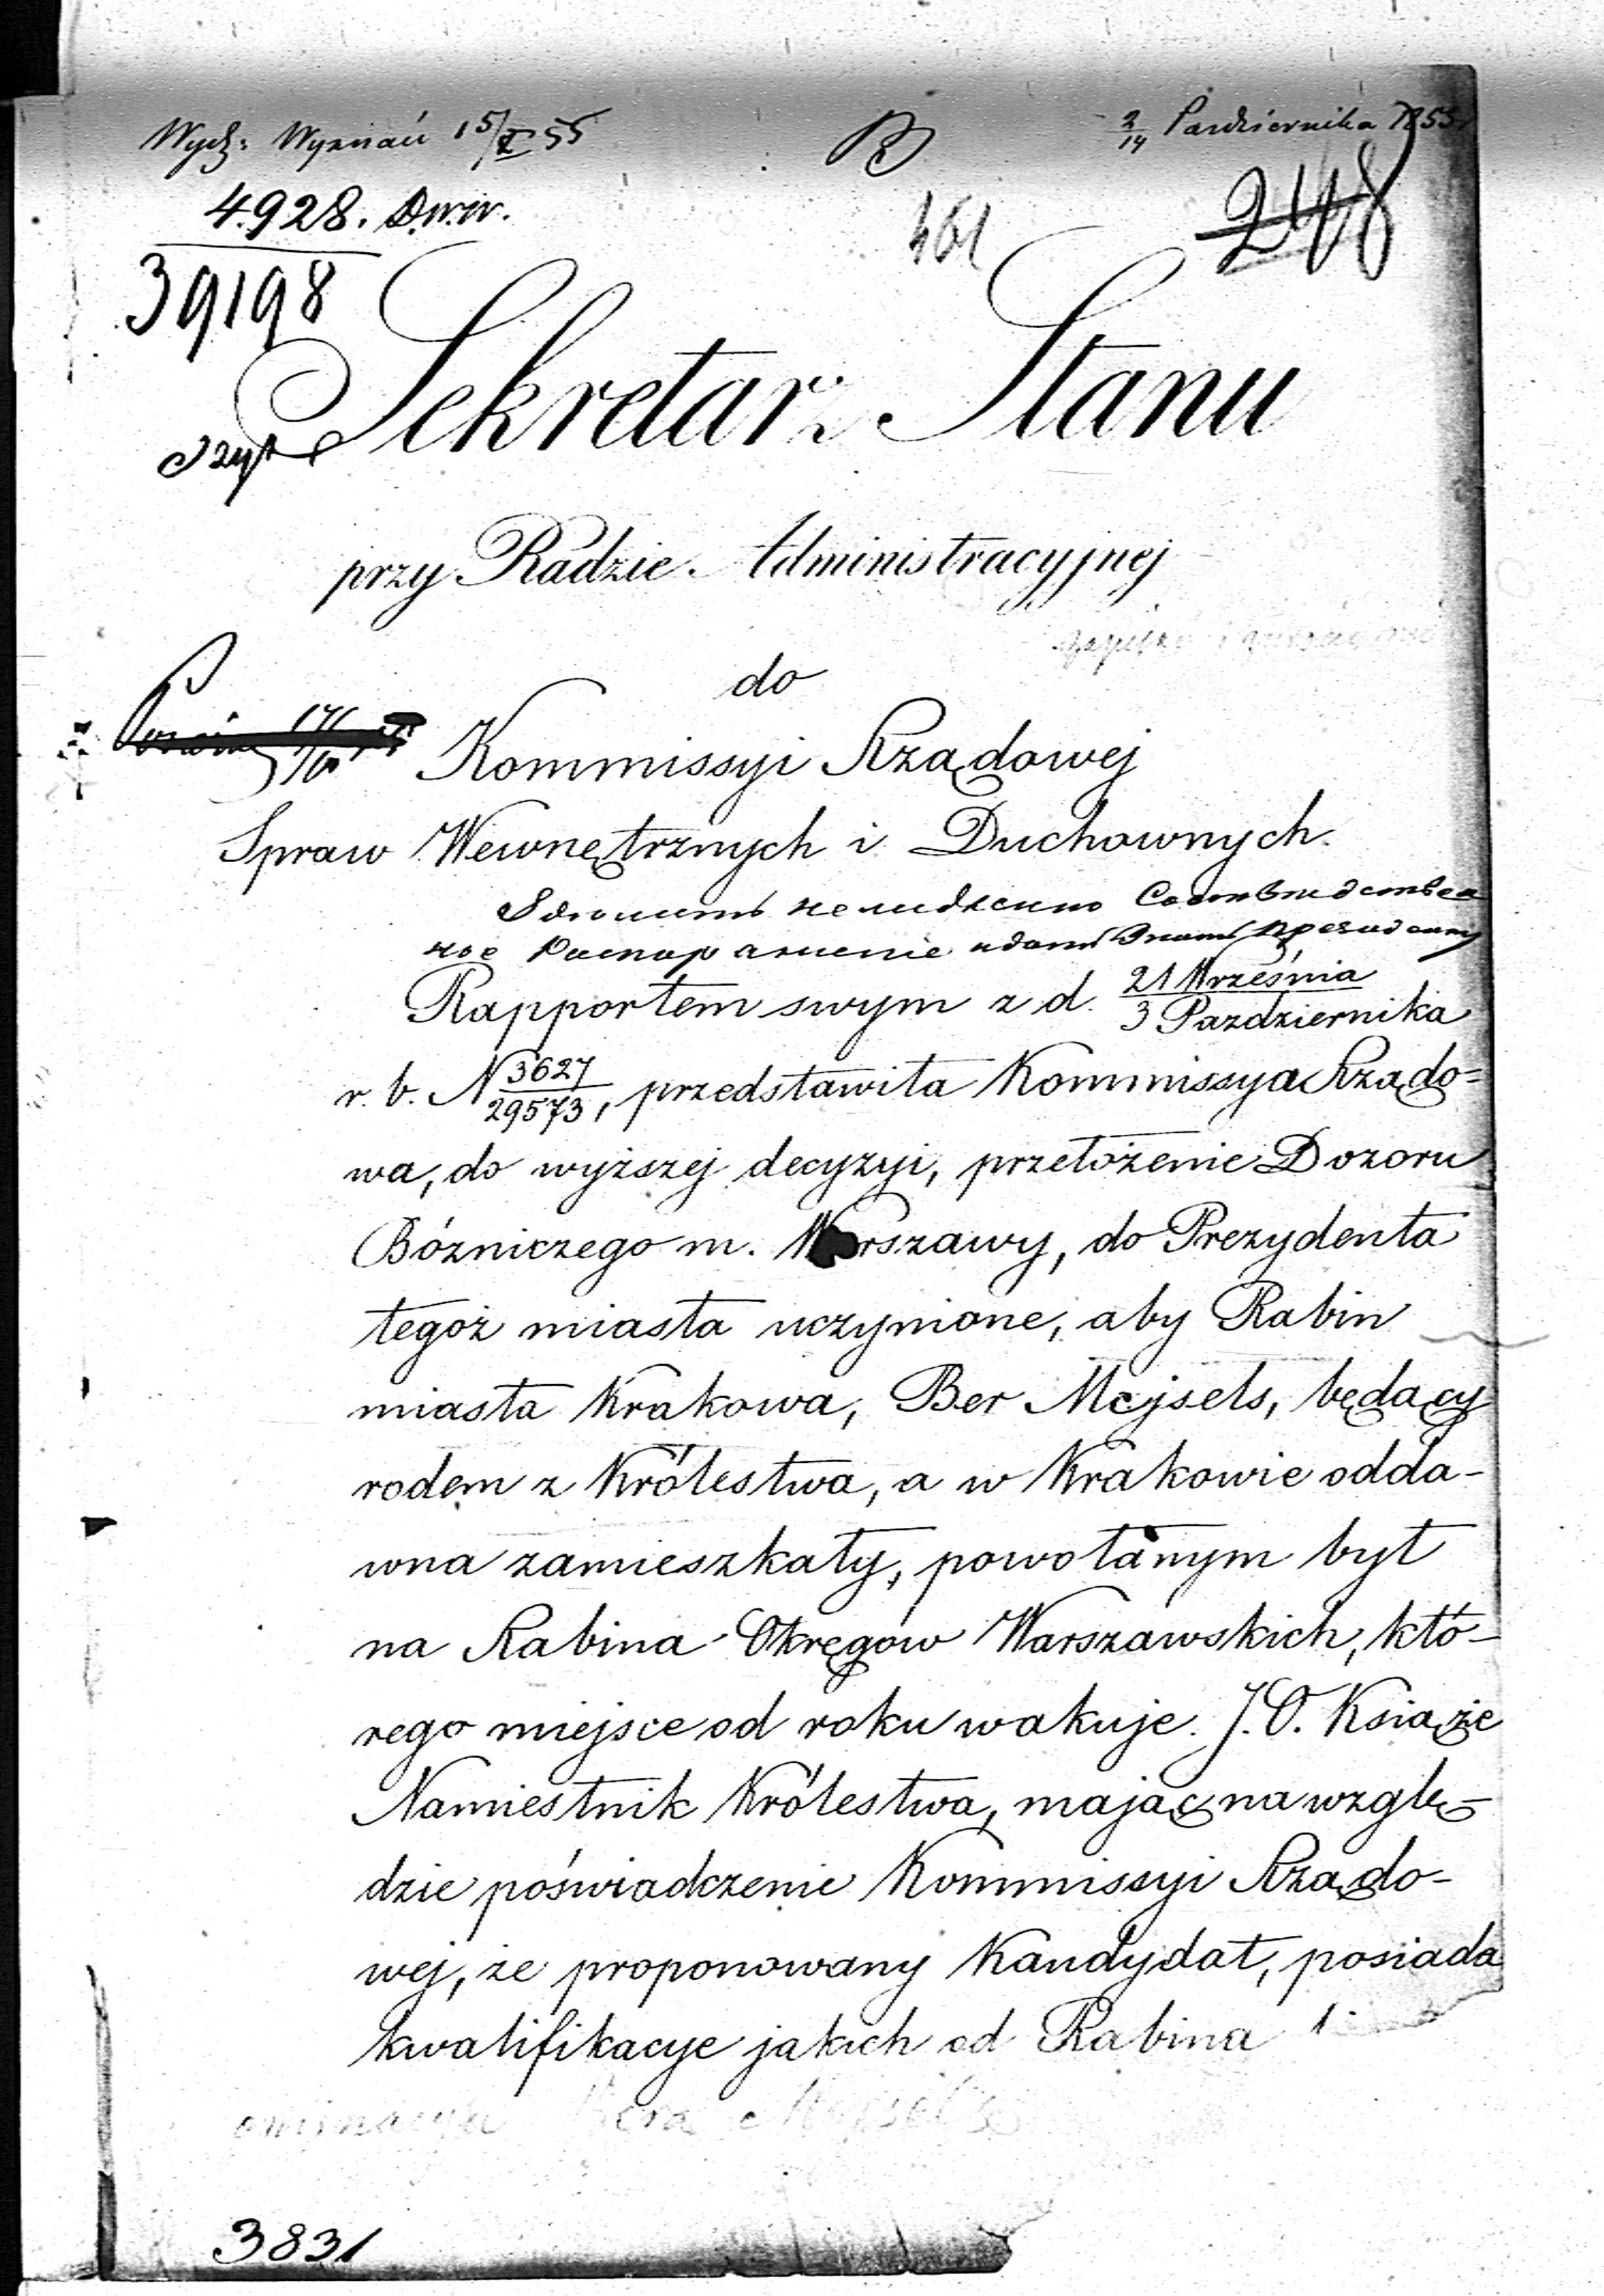 Wydz: Wyznań 15/X 55
2/14 Października 1855
4928. D.W.W.
461
248
39198
Sekretarz Stanu
przy Radzie Administracyjnej
do
Kommissyi Rządowej
Spraw Wewnętrznych i Duchownych.
Rapportem swym z d. 21 Września / 3 Pazdziernika
r. b. N 3627/29573, przedstawiła Kommissya Rządo=
wa, do wyższej decyzyi, przełożenie Dozoru
Bózniczego m. Warszawy, do Prezydenta
tegoż miasta uczynione, aby Rabin
miasta Krakowa, Ber Mejsels, będący
rodem z Królestwa, a w Krakowie odda-
wna zamieszkały, powołanym był
na Rabina Okręgów Warszawskich, któ-
rego miejsce od roku wakuje. J. O. Książe
Namiestnik Królestwa, mając na wzglę-
dzie poświadczenie Kommissyi Rządo-
wej, że proponowany Kandydat, posiada
kwalifikacye jakich od Rabina
3831